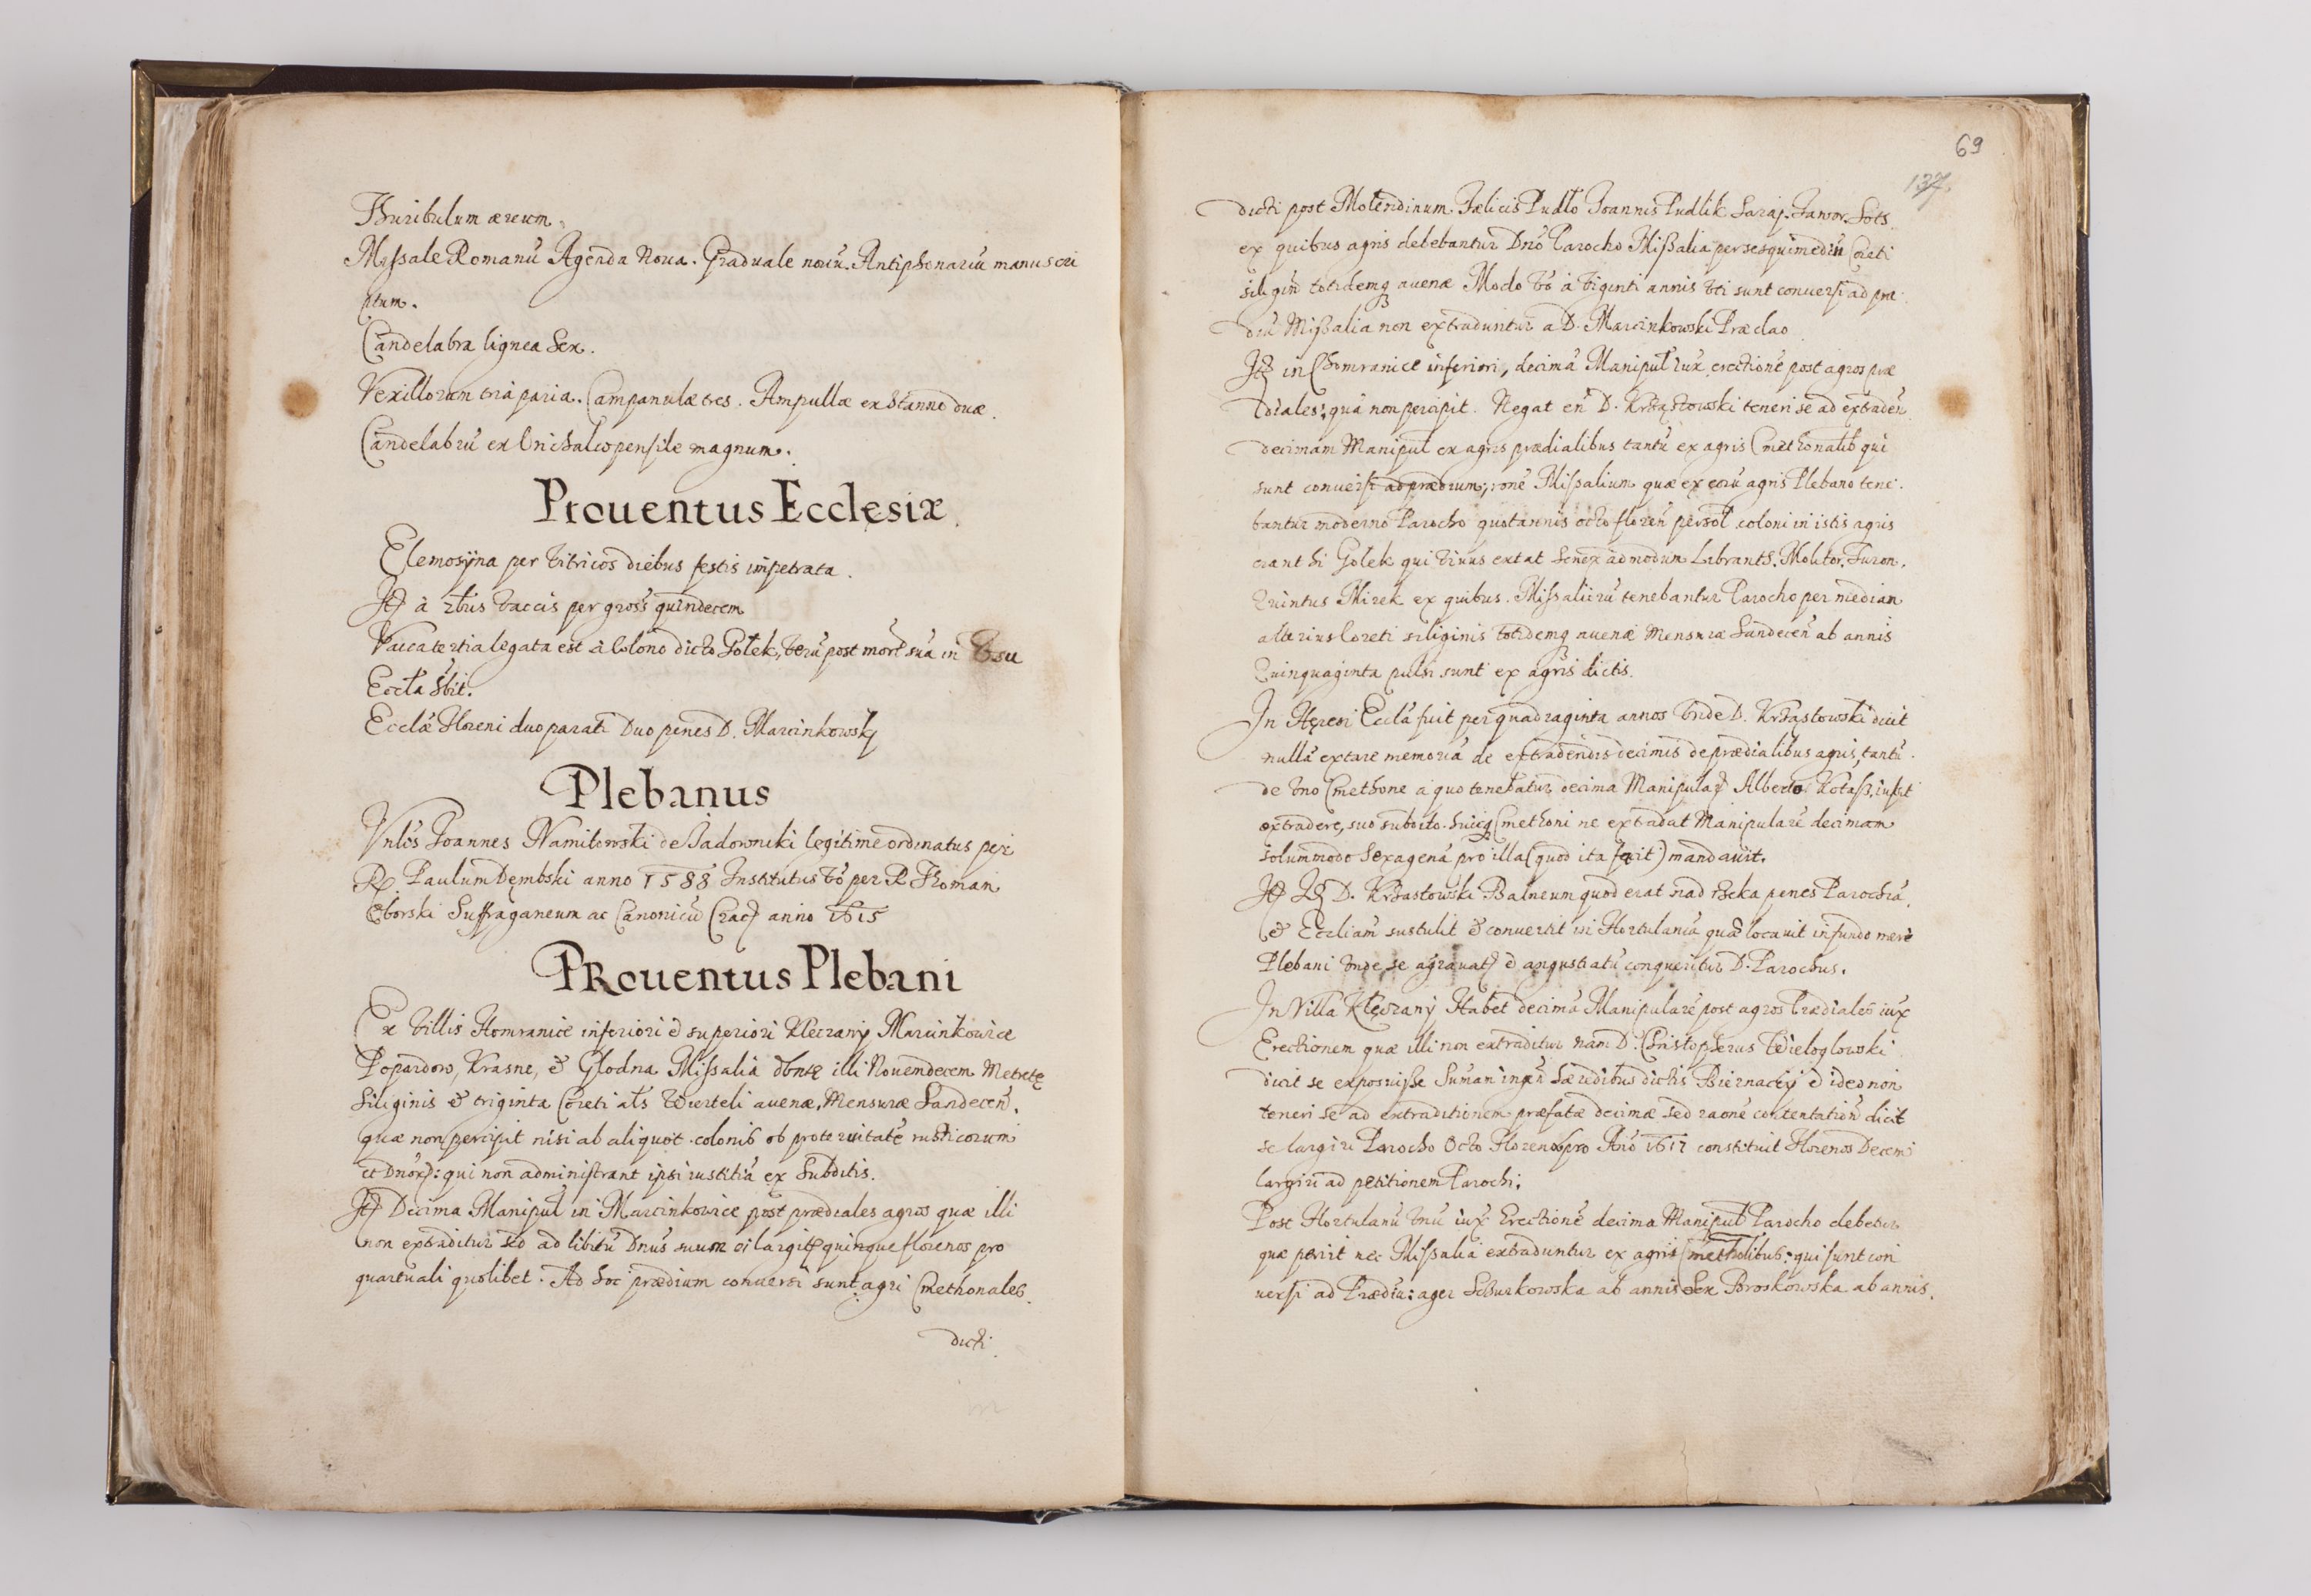 Thuribulum æreum.
Missale Romanū Agenda Noua. Graduale nouū. Antiphonariū manuscri
ptum.
Candelabra lignea Sex.
Vexillorum tria paria. Campanulæ tres. Ampullæ ex Stanno duæ.
Candelabrū ex Orichalco pensile magnum.
Prouentus Ecclesiæ
Elemosÿna per Vitricos diebus festis impetrata.
à vaccis per gross quindecem
Vacca tertia legata est à Colono dicto Gołek, verū post mortē suā in Vsu
Eccłæ
Ecclæ Floreni duo parati Duo penes D. Marcinkowskij
Plebanus
Joannes Namiłowski de Jadowniki legitime ordinatus per
R. Paulum Dęmbski anno 1588 Institutus vō per R. Thoman
Oborski Suffraganeum ac Canonicū Crac anno 1615
PRouentus Plebani
Ex Villis Homranice inferiori & superiori Kleczany Marcinkowice
Popardow, Krasne, & Głodna Missalia dbntę illi Nouemdecem Metretę
Siliginis & triginta Coreti als Wierteli auenæ, Mensuræ Sandecen.
quæ non percipit nisi ab aliquot colonis ob proteruitatē rusticorum
et Dnōr: qui non administrant ipsi iustitiā ex Subditis.
Decima Manipul in Marcinkowice post prædiales agros quæ illi
non extraditur sed ad libitū Dnūs suus ei largit quinque florenos pro
quartuali quolibet. Ad hoc prædium conuersi sunt agri Cmethonales
dicti
69
137.
dicti post Molendinum Fælicis Pudło Joannis Pudlik
ex quibus agris debebantur Dnō Parocho Missalia per sesquimediū Coreti
siligin totidemq auenæ Modo vō à viginti annis vti sunt conuersi ad præ
diū Missalia non extraduntur a D. Marcinkowski Præclao
in Chomranice inferiori, decimā Manipul iux erectionē post agros præ
diales, quā non percipit. Negat en D. Krząstowski teneri se ad extraden
decimam Manipul ex agris prædialibus tantū ex agris Cmethonalib qui
sunt conuersi ad prædium, rōne Missalium quæ ex eorū agris Plebano tene
bantur moderno Parocho quotannis octo floren persol coloni in istis agris
erant hi Gołek qui viuus extat Senex admodum Labrants. Molitor. Furon.
Quintus Mirek ex quibus Missaliū tenebantur Parocho per median
alterius Coreti siliginis totidemq auenæ Mensuræ Sandecen ab annis
Quinquaginta pulsi sunt ex agris dictis.
In Hęresi Eccla fuit per quadraginta annos vnde D. Krząstowski dicit
nullā extare memoriā de extradendis decimis de prædialibus agris, tantū
de vno Cmethone a quo tenebatur decima Manipular Alberto
extradere, suo subdito huicq Cmethoni ne extradat Manipularē decimam
solummodo Sexagenā pro illa (quod ita facit) mandauit.
D. Krząstowski Balneum quod erat nad rzeka penes Parochiā
& Eccliam sustulit & conuertit in Hortulaniā quā locauit in fundo mere
Plebani vnde se agrauat & angustiatū conqueritur D. Parochus.
In Villa Kłęczany Habet decimā Manipularē post agros Prædiales iux
Erectionem quæ illi non extraditur nam D. Christopherus Wieloglowski
dicit se exposuisse Sūmam ingen hæredibus dictis Biernaccy & ideo non
teneri se ad extraditionem præfatæ decimæ sed raōne contentation dicit
se largiri Parocho Octo Florenos pro Anō 1617 constituit Florenos Decem
largiri ad petitionem Parochi.
Post Hortulanū vnū iux Erectionē decima Manipul Parocho debetur
quæ perit nec Missalia extraduntur ex agris Cmetholibus: qui sunt con
uersi ad Prædiū: ager ab annis Sex Broskowska ab annis.